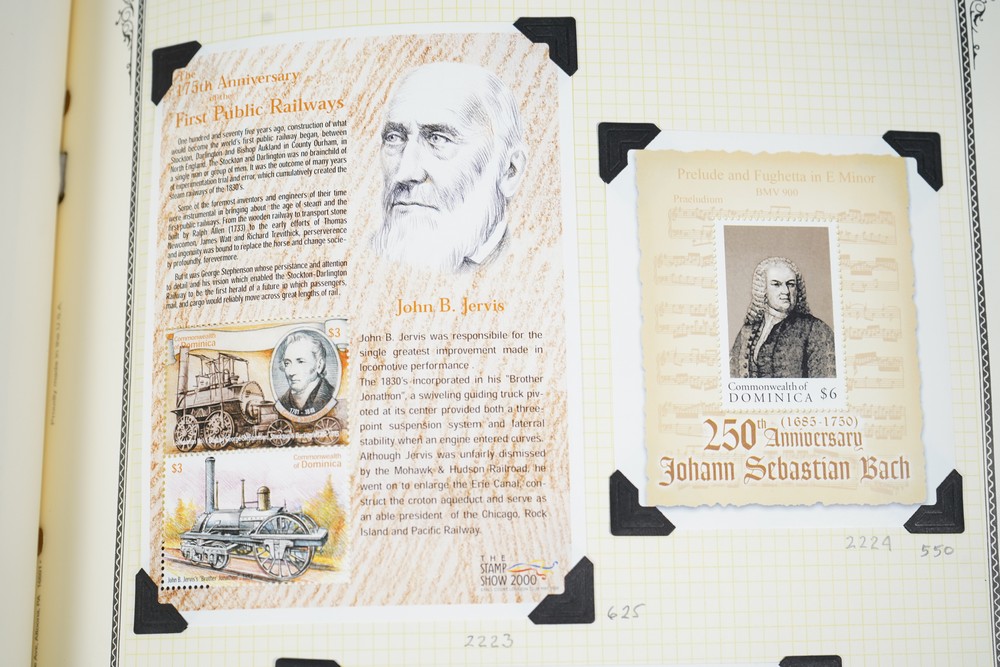 The
175th Anniversary
of the
First Public Railways
One hundred and seventy five years ago, construction of what
would become the world's first public railway began, between
Stockton, Darlington and Bishop Aukland in County Ourham, in
North England. The Stockton and Darlington was no brainchild of
a single man or group of men. It was the outcome of many years
of experimentation trial and error, which cumulatively created the
Steam railways of the 1830's.
Some of the foremost inventors and engineers of their time
were instrumental in bringing about the age of steam and the
first public railways. From the wooden railway to transport stone
built by Ralph Allen (1733) to the early efforts of Thomas
Newcomon, James Watt and Richard Trevithick, perserverence
and ingenuity was bound to replace the horse and change socie-
ty profoundly, forevermore.
But it was George Stephenson whose persistance and attention
to detail and his vision which enabled the Stockton-Darlington
Railway to be the first herald of a future in which passengers,
mail, and cargo would reliably move across great lengths of rail.
Commonwealth
of Dominica
$3
1781 - 1848
$3
Commonwealth
of Dominica
John B. Jervis's "Brother Jonathan"
John B. Jervis
John B. Jervis was responsible for the
single greatest improvement made in
locomotive performance .
The 1830's incorporated in his "Brother
Jonathon", a swiveling guiding truck piv-
oted at its center provided both a three-
point suspension system and laterral
stability when an engine entered curves.
Although Jervis was unfairly dismissed
by the Mohawk & Hudson Railroad, he
went on to enlarge the Erie Canal, con-
struct the croton aqueduct and serve as
an able president of the Chicago, Rock
Island and Pacific Railway.
THE
STAMP
SHOW 2000
2223
625
Prelude and Fughetta in E Minor
BMV 900
Praeludium
Commonwealth of
DOMINICA $6
(1685-1750)
250th Anniversary
Johann Sebastian Bach
2224
550